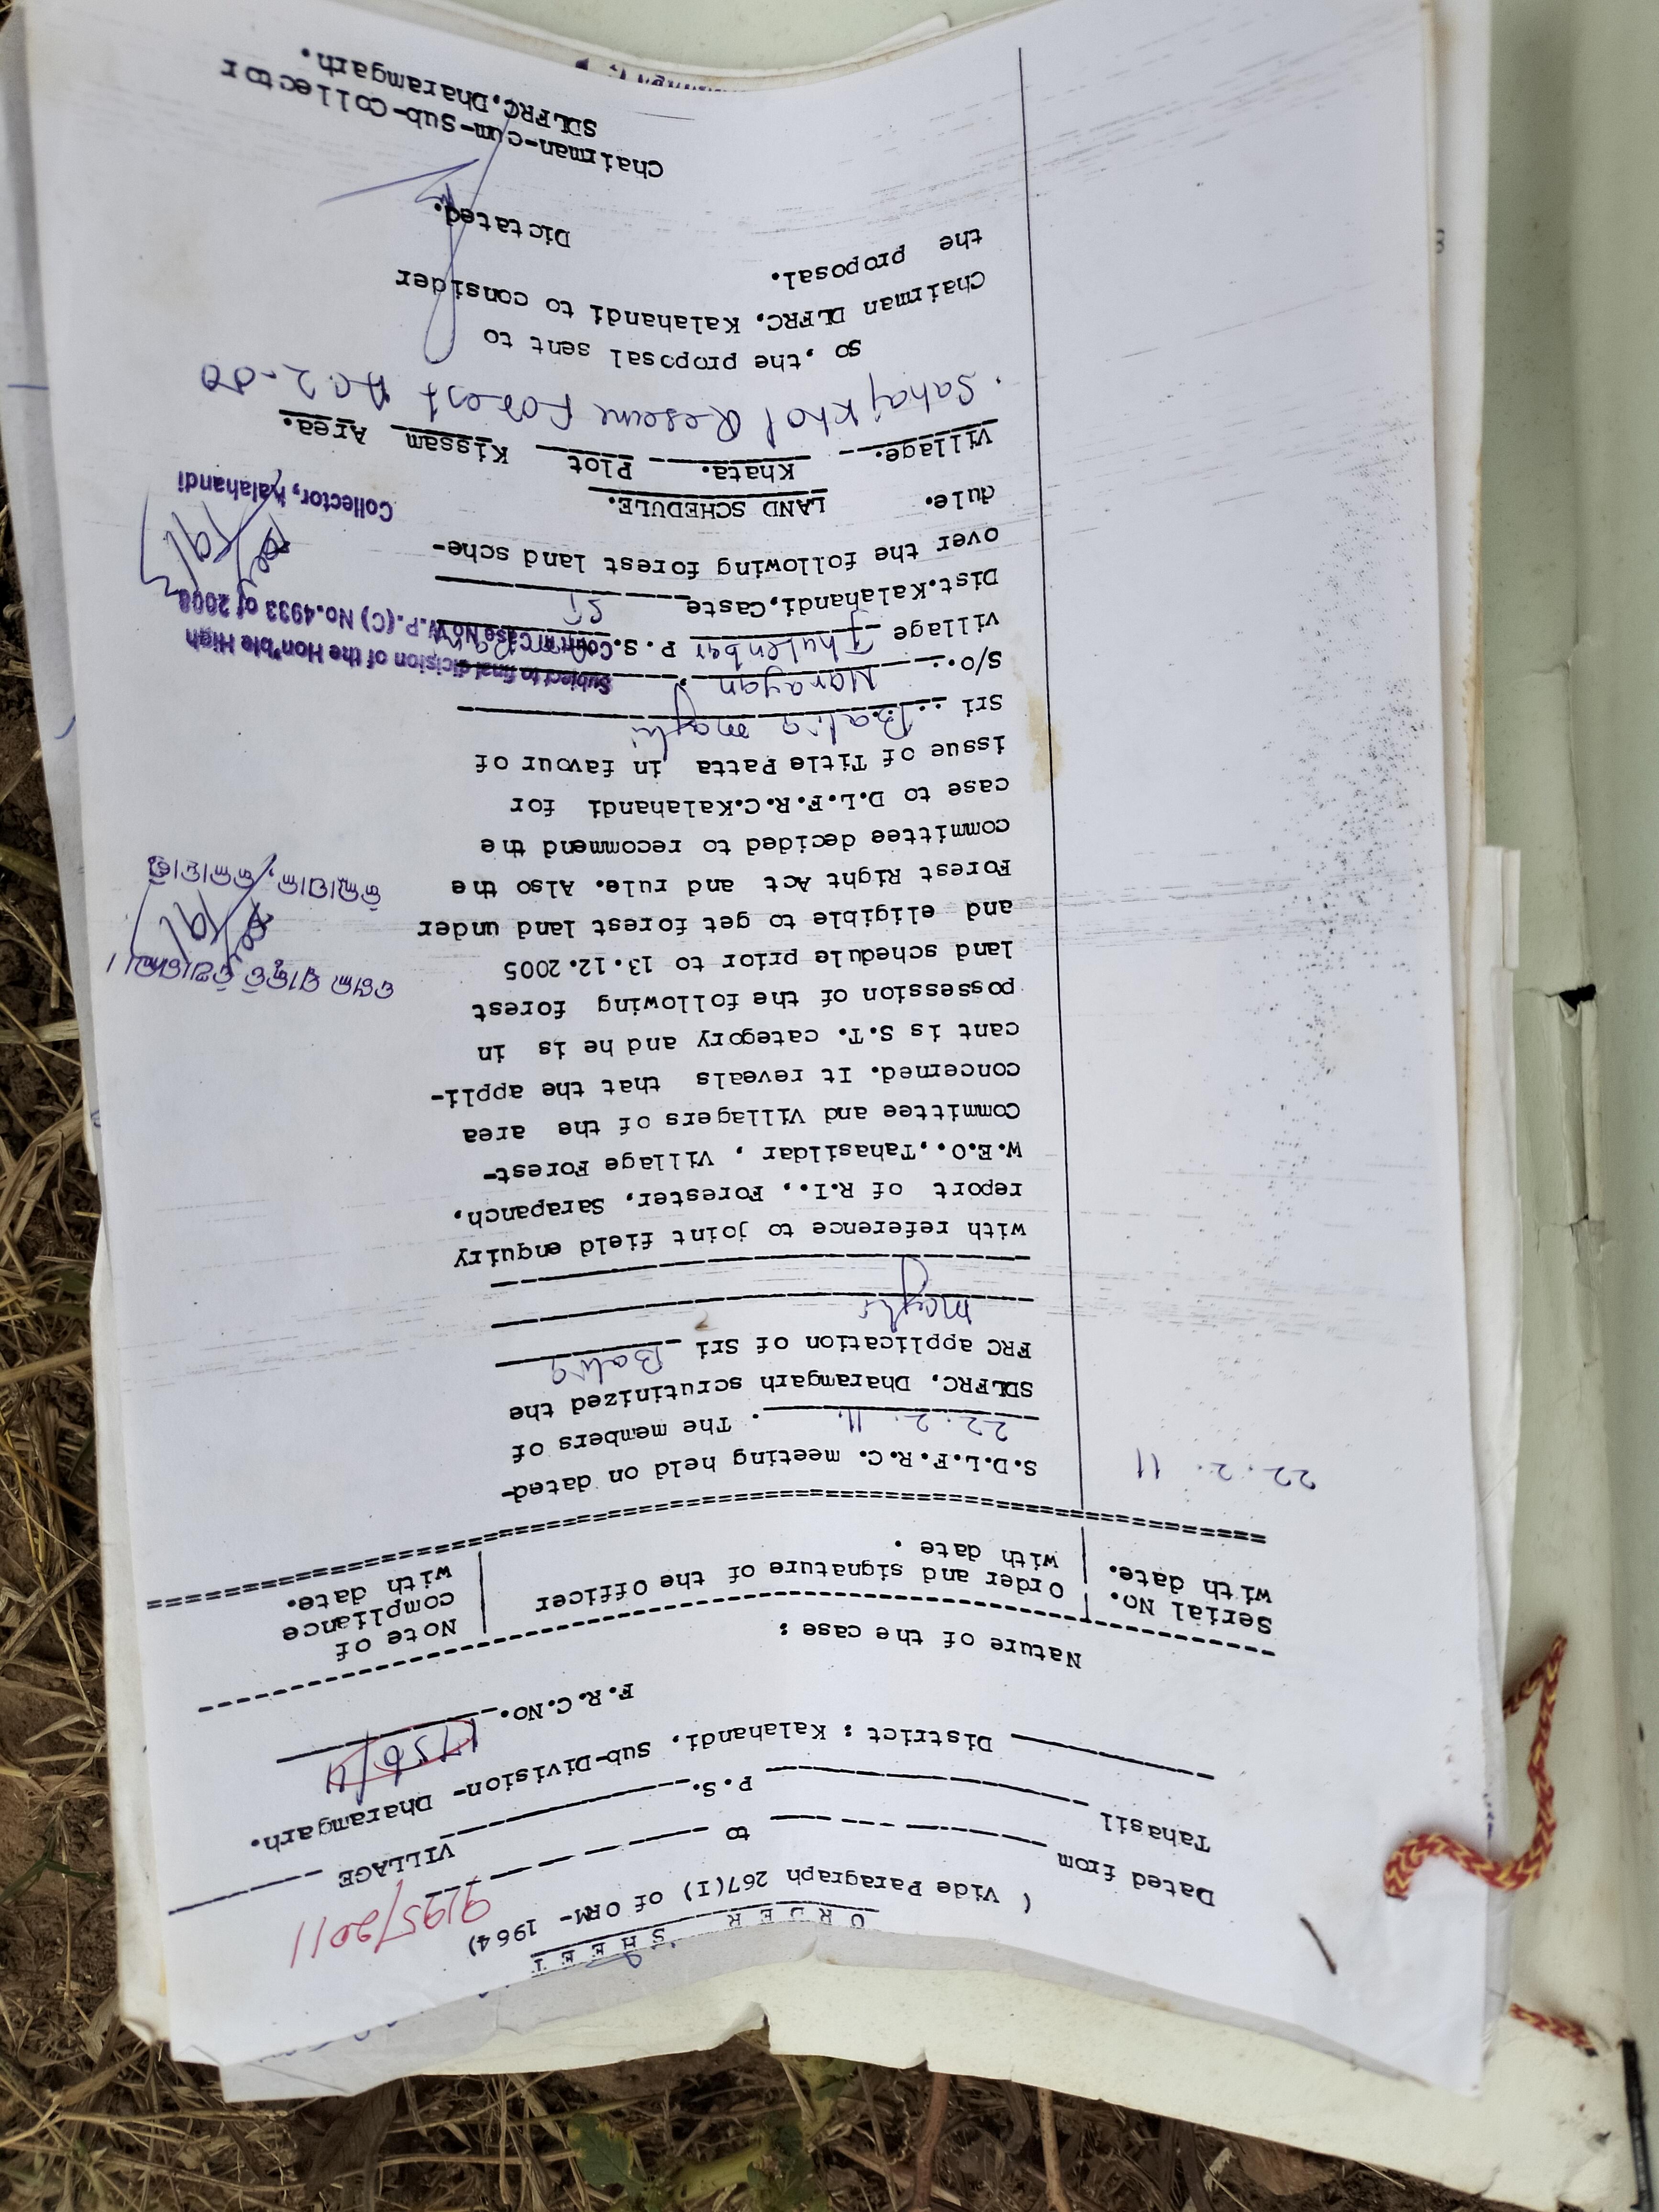 ORDER SHEET
( Vide Paragraph 267(I) of ORM- 1964)
9195/2011
Dated from to VILLAGE
Tahasil P.S.
District : Kalahandi, Sub-Division- Dharamgarh.
F.R.C.No. 1756/11
Nature of the case :
Serial No. with date.
Order and signature of the Officer with date .
Note of compliance with date.
22.2.11
S.D.L.F.R.C. meeting held on dated-
22.2.11. The members of
SDLFRC, Dharamgarh scrutinized the
FRC application of Sri Balia
majhi
with reference to joint field enquiry
report of R.I., Forester, Sarapanch,
W.E.O.,Tahasildar , Village Forest-
Committee and Villagers of the area
concerned. It reveals that the appli-
cant is S.T. category and he is in
possession of the following forest
land schedule prior to 13.12.2005
and eligible to get forest land under
Forest Right Act and rule. Also the
committee decided to recommend the
case to D.L.F.R.C.Kalahandi for
issue of Title Patta in favour of
Sri Balia majhi
S/O. Narayan
village Thulenbar P.S.
Dist.Kalahandi,Caste ST
over the following forest land sche-
dule.
ଜିଲ୍ଲାପାଳ, କଳାହାଣ୍ଡି
Subject to final dicision of the Hon'ble High
Court in Case No. W.P.(C) No.4933 of 2008
Collector, Kalahandi
LAND SCHEDULE.
Village. Khata. Plot Kissam Area.
Sahajkhol Reserve Forest AC 2-00
So ,the proposal sent to
Chairman DLFRC, Kalahandi to consider
the proposal.
Dictated.
Chairman-cum-Sub-Collector
SDLFRC,Dharamgarh.